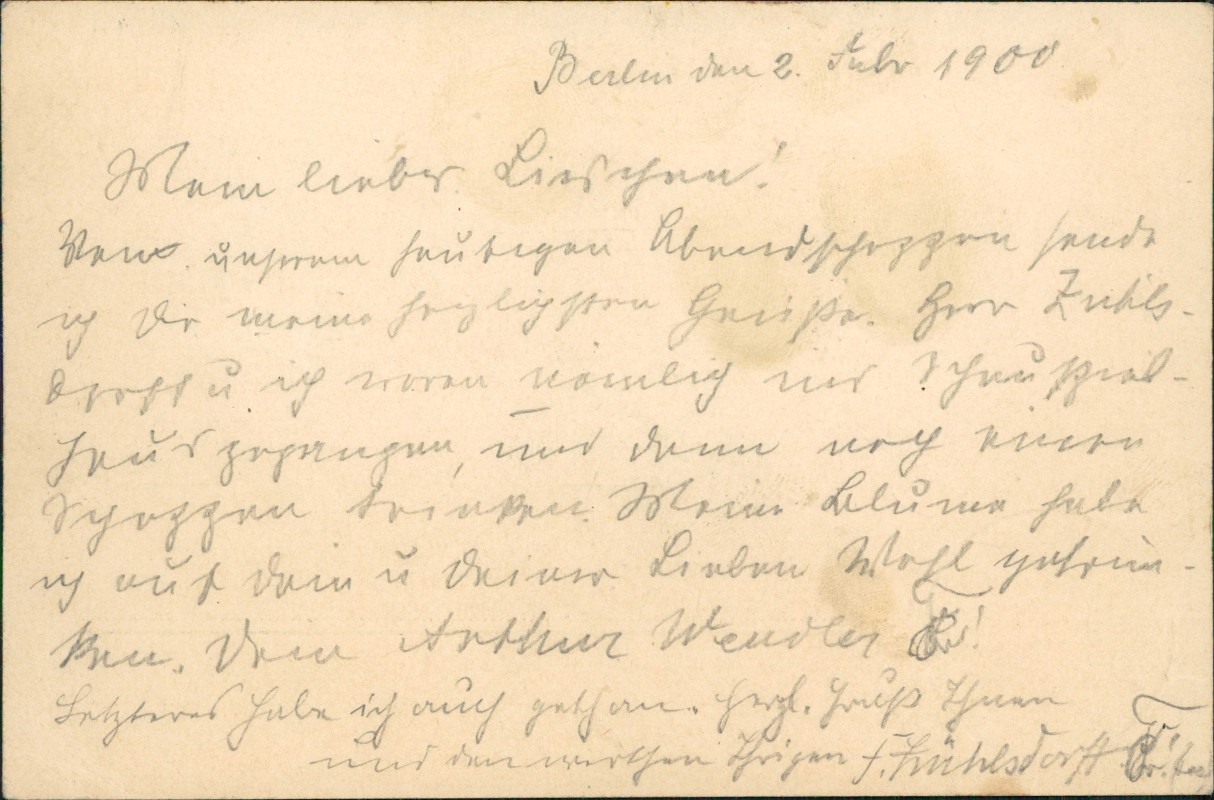 Berlin den 2. Febr 1900
Mein liebes Lieschen!
Von unserem heutigen Abendschoppen sende
ich Dir meine herzlichsten Grüße. Herr
u ich waren nämlich ins Schauspiel-
haus gegangen, und dann noch einen
Schoppen trinken. Meine Blume habe
ich auf dein u deiner Lieben Wohl getrun-
ken. Dein Arthur Wendler
Letzteres habe ich auch gethan. Herzl. Gruß Ihnen
und den werthen Ihrigen